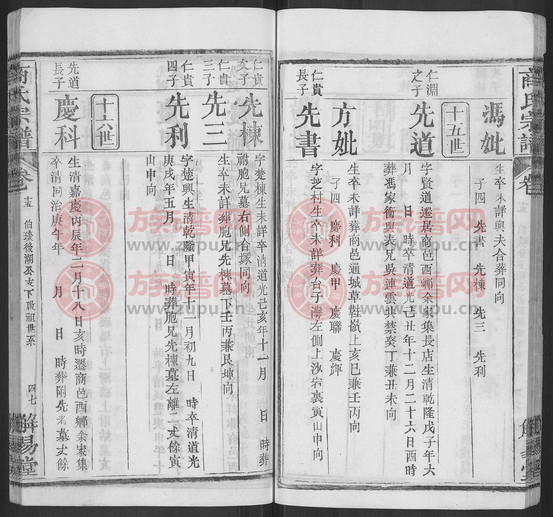 商氏宗譜
馮妣
生卒未詳與夫合葬同向
子四 先書 先棟 先三 先利
十五世
仁淵之子
先道
字賢道遷居商邑酉鄉余家集長店生清乾隆戊子年六
月 日 時卒清道光己丑年十二月二十六日酉時
葬馮家衝與表兄吳連雲共禁癸丁兼丑未向
方妣
生卒未詳葬商邑過城草鞋坳上亥巳兼壬丙向
子四 慶科 慶甲 慶聯 慶煇
仁貴長子
先書
字芝村生卒未詳葬台子灣左側上沙岩裏寅山申向
仁貴次子
先棟
字楚棟生未詳卒清道光己亥年十一月 日 時葬
祔胞兄墓右側合塚同向
仁貴三子
先三
生卒未詳葬胞兄先棟墓下壬丙兼艮坤向
仁貴四子
先利
字楚興生清乾隆甲寅年十二月初九日 時卒清道光
庚戌年五月 日 時葬胞兄先棟墓左離一丈餘寅
山申向
十六世
先道長子
慶科
生清嘉慶丙辰年二月十八日亥時遷商邑酉鄉余家集
卒清同治庚午年 月 日 時葬附先考墓丈餘
商氏宗譜
卷
伯臻後湖公支下啟祖世系
四七
解易堂
族谱网
www.zupu.cn
族谱网
www.zupu.cn
族谱网
www.zupu.cn